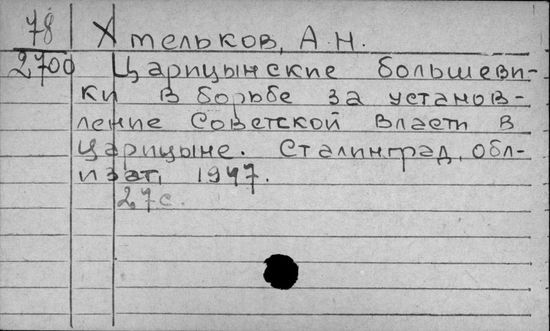 78
Хмельков, А.Н.
2700
Царицынские большеви-
ки в борьбе за установ-
ление Советской власти в
Царицыне. Сталинград, обл-
издат, 1947.
27с.